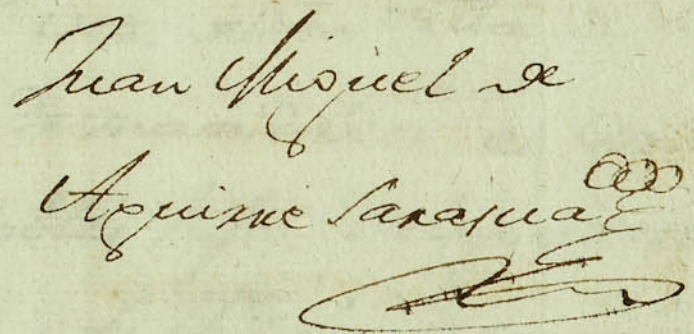 Juan Miguel de
Aguirre Sarasua